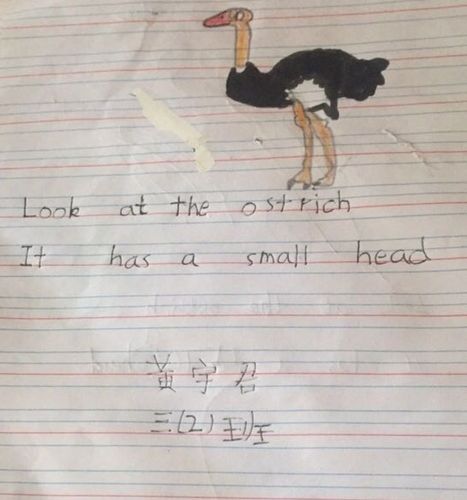 Look at the ostrich
It has a small head
黄宇君
三(2)班